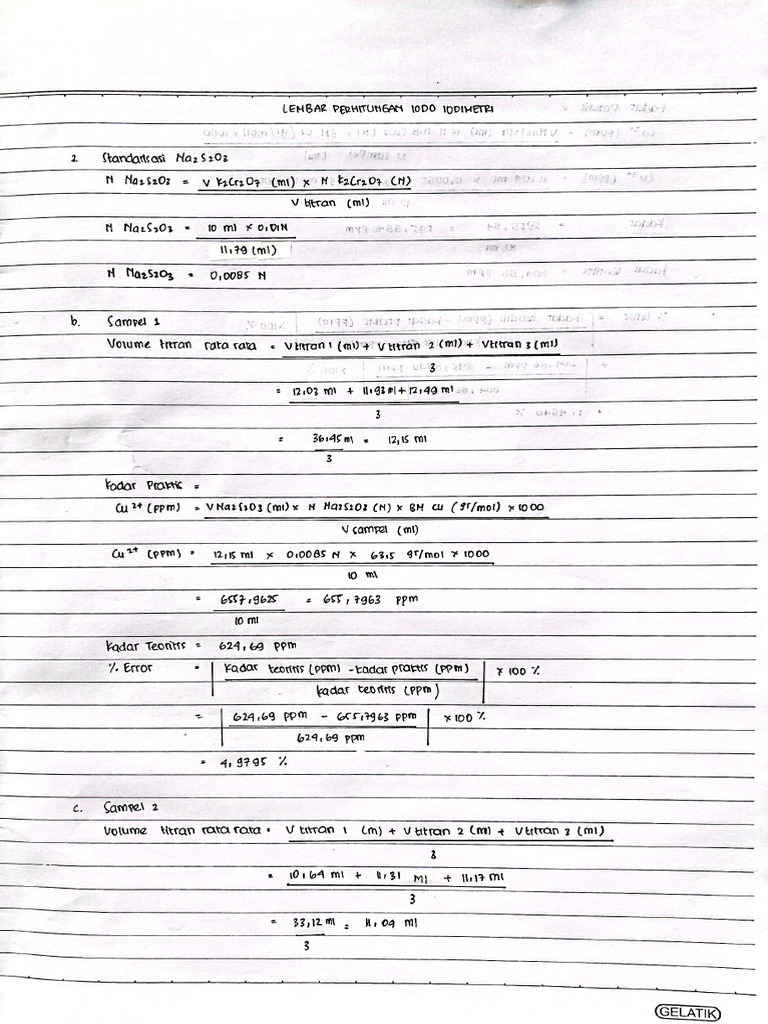 LEMBAR PERHITUNGAN IODO IODIMETRI
a. Standarisasi Na2S2O3
N Na2S2O3 = V K2Cr2O7 (ml) x N K2Cr2O7 (N)
V titran (ml)
N Na2S2O3 = 10 ml x 0,01N
11,79 (ml)
N Na2S2O3 = 0,0085 N
b. Sampel 1
Volume titran rata rata = V titran 1 (ml) + V titran 2 (ml) + V titran 3 (ml)
3
= 12,03 ml + 11,93 ml + 12,49 ml
3
= 36,45 ml = 12,15 ml
3
Kadar Praktis =
Cu2+ (ppm) = V Na2S2O3 (ml) x N Na2S2O3 (N) x BM Cu (gr/mol) x 1000
V sampel (ml)
Cu2+ (ppm) = 12,15 ml x 0,0085 N x 63,5 gr/mol x 1000
10 ml
= 6557,9625 = 655,7963 ppm
10 ml
Kadar Teoritis = 624,69 ppm
% Error = | Kadar teoritis (ppm) - Kadar praktis (ppm) | x 100 %
kadar teoritis (ppm)
= | 624,69 ppm - 655,7963 ppm | x 100 %
624,69 ppm
= 4,9795 %
c. Sampel 2
Volume titran rata rata = V titran 1 (m) + V titran 2 (ml) + V titran 3 (ml)
3
= 10,64 ml + 11,31 ml + 11,17 ml
3
= 33,12 ml = 11,04 ml
3
GELATIK